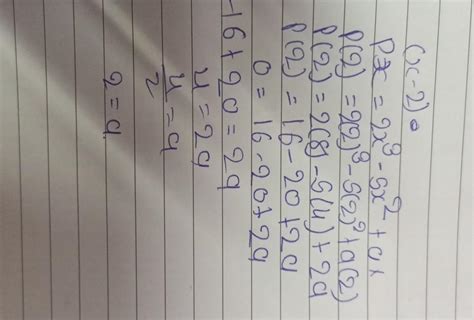 (x-2)=
Px = 2x³ - 5x² + ax
P(2) = 2(2)³ - 5(2)² + a(2)
P(2) = 2(8) - 5(4) + 2a
P(2) = 16 - 20 + 2a
0 = 16 - 20 + 2a
-16 + 20 = 2a
4 = 2a
4/2 = a
2 = a